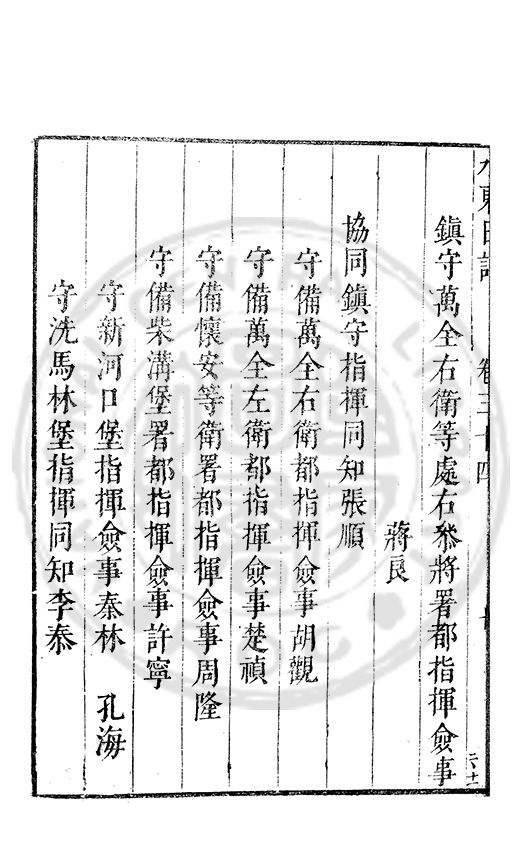 水東日記 卷三十四
鎮守萬全右衛等處右叅將署都指揮僉事
蔣良
協同鎮守指揮同知張順
守備萬全右衛都指揮僉事胡觀
守備萬全左衛都指揮僉事楚禎
守備懷安等衛署都指揮僉事周隆
守備柴溝堡署都指揮僉事許寧
守新河口堡指揮僉事秦林 孔海
守洗馬林堡指揮同知李泰